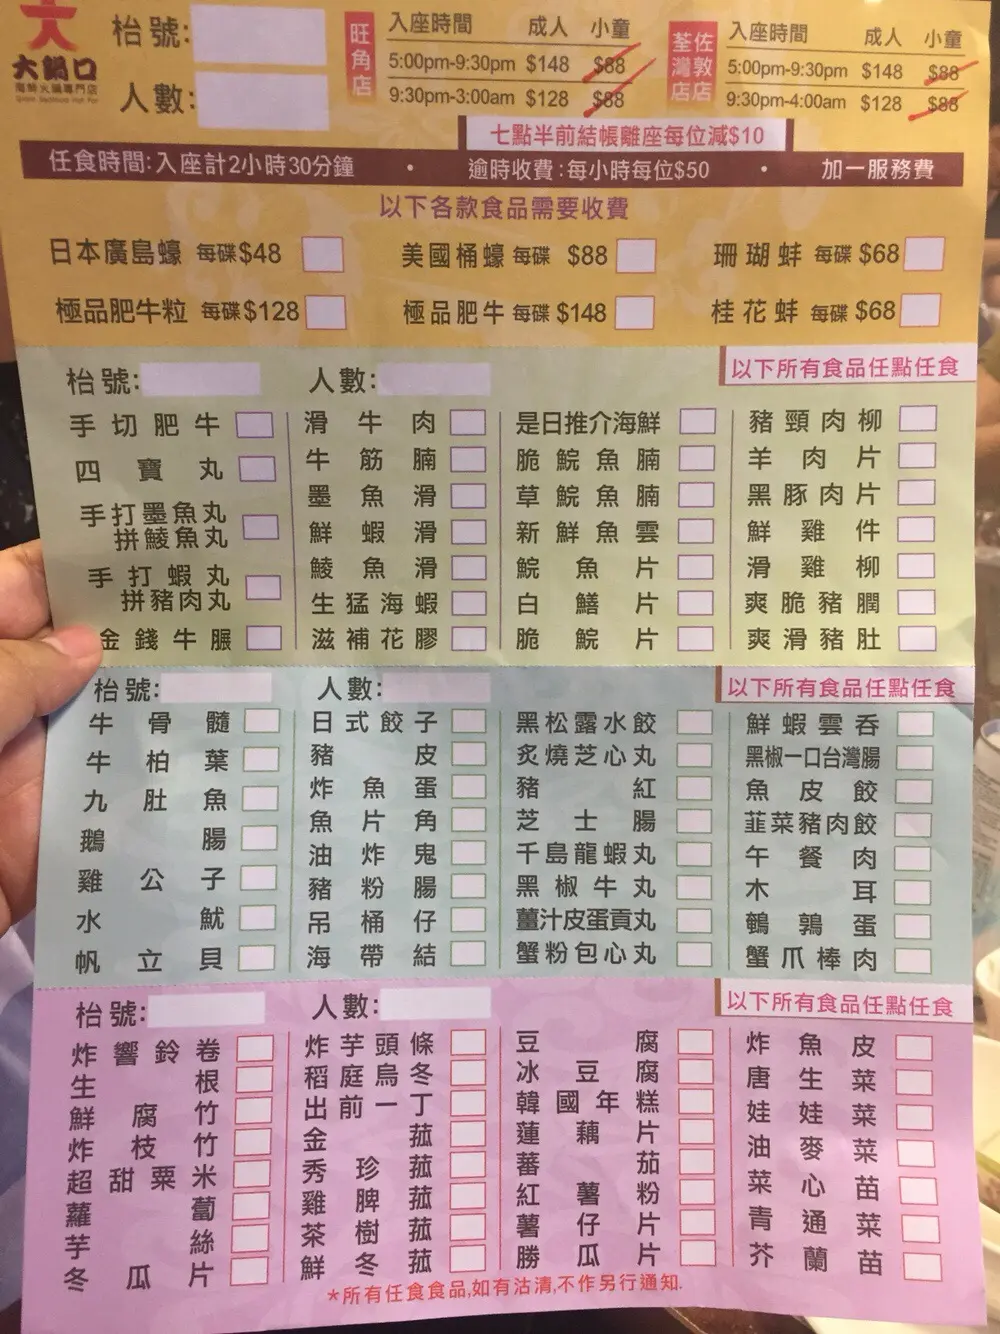 大鍋口
海鮮火鍋專門店
枱號:
人數:
旺角店
入座時間 成人 小童
5:00pm-9:30pm $148 $88
9:30pm-3:00am $128 $88
荃灣店 佐敦店
入座時間 成人 小童
5:00pm-9:30pm $148 $88
9:30pm-4:00am $128 $88
七點半前結帳離座每位減$10
任食時間:入座計2小時30分鐘 · 逾時收費:每小時每位$50 · 加一服務費
以下各款食品需要收費
日本廣島蠔 每碟$48 美國桶蠔 每碟 $88 珊瑚蚌 每碟 $68
極品肥牛粒 每碟$128 極品肥牛 每碟 $148 桂花蚌 每碟 $68
枱號: 人數: 以下所有食品任點任食
手切肥牛
四寶丸
手打墨魚丸
拼鯪魚丸
手打蝦丸
拼豬肉丸
金錢牛𦟌
滑牛肉
牛筋腩
墨魚滑
鮮蝦滑
鯪魚滑
生猛海蝦
滋補花膠
是日推介海鮮
脆鯇魚腩
草鯇魚腩
新鮮魚雲
鯇魚片
白鱔片
脆鯇片
豬頸肉柳
羊肉片
黑豚肉片
鮮雞件
滑雞柳
爽脆豬膶
爽滑豬肚
枱號: 人數: 以下所有食品任點任食
牛骨髓
牛柏葉
九肚魚
鵝腸
雞公子
水魷
帆立貝
日式餃子
豬皮
炸魚蛋
魚片角
油炸鬼
豬粉腸
吊桶仔
海帶結
黑松露水餃
炙燒芝心丸
豬紅
芝士腸
千島龍蝦丸
黑椒牛丸
薑汁皮蛋貢丸
蟹粉包心丸
鮮蝦雲吞
黑椒一口台灣腸
魚皮餃
韮菜豬肉餃
午餐肉
木耳
鵪鶉蛋
蟹爪棒肉
枱號: 人數: 以下所有食品任點任食
炸響鈴卷
生根
鮮腐竹
炸枝竹
超甜粟米
蘿蔔
芋絲
冬瓜片
炸芋頭條
稻庭烏冬
出前一丁
金菇
秀珍菇
雞脾菇
茶樹菇
鮮冬菇
豆腐
冰豆腐
韓國年糕
蓮藕片
蕃茄
紅薯粉
薯仔片
勝瓜片
炸魚皮
唐生菜
娃娃菜
油麥菜
菜心苗
青通菜
芥蘭苗
*所有任食食品,如有沽清,不作另行通知.